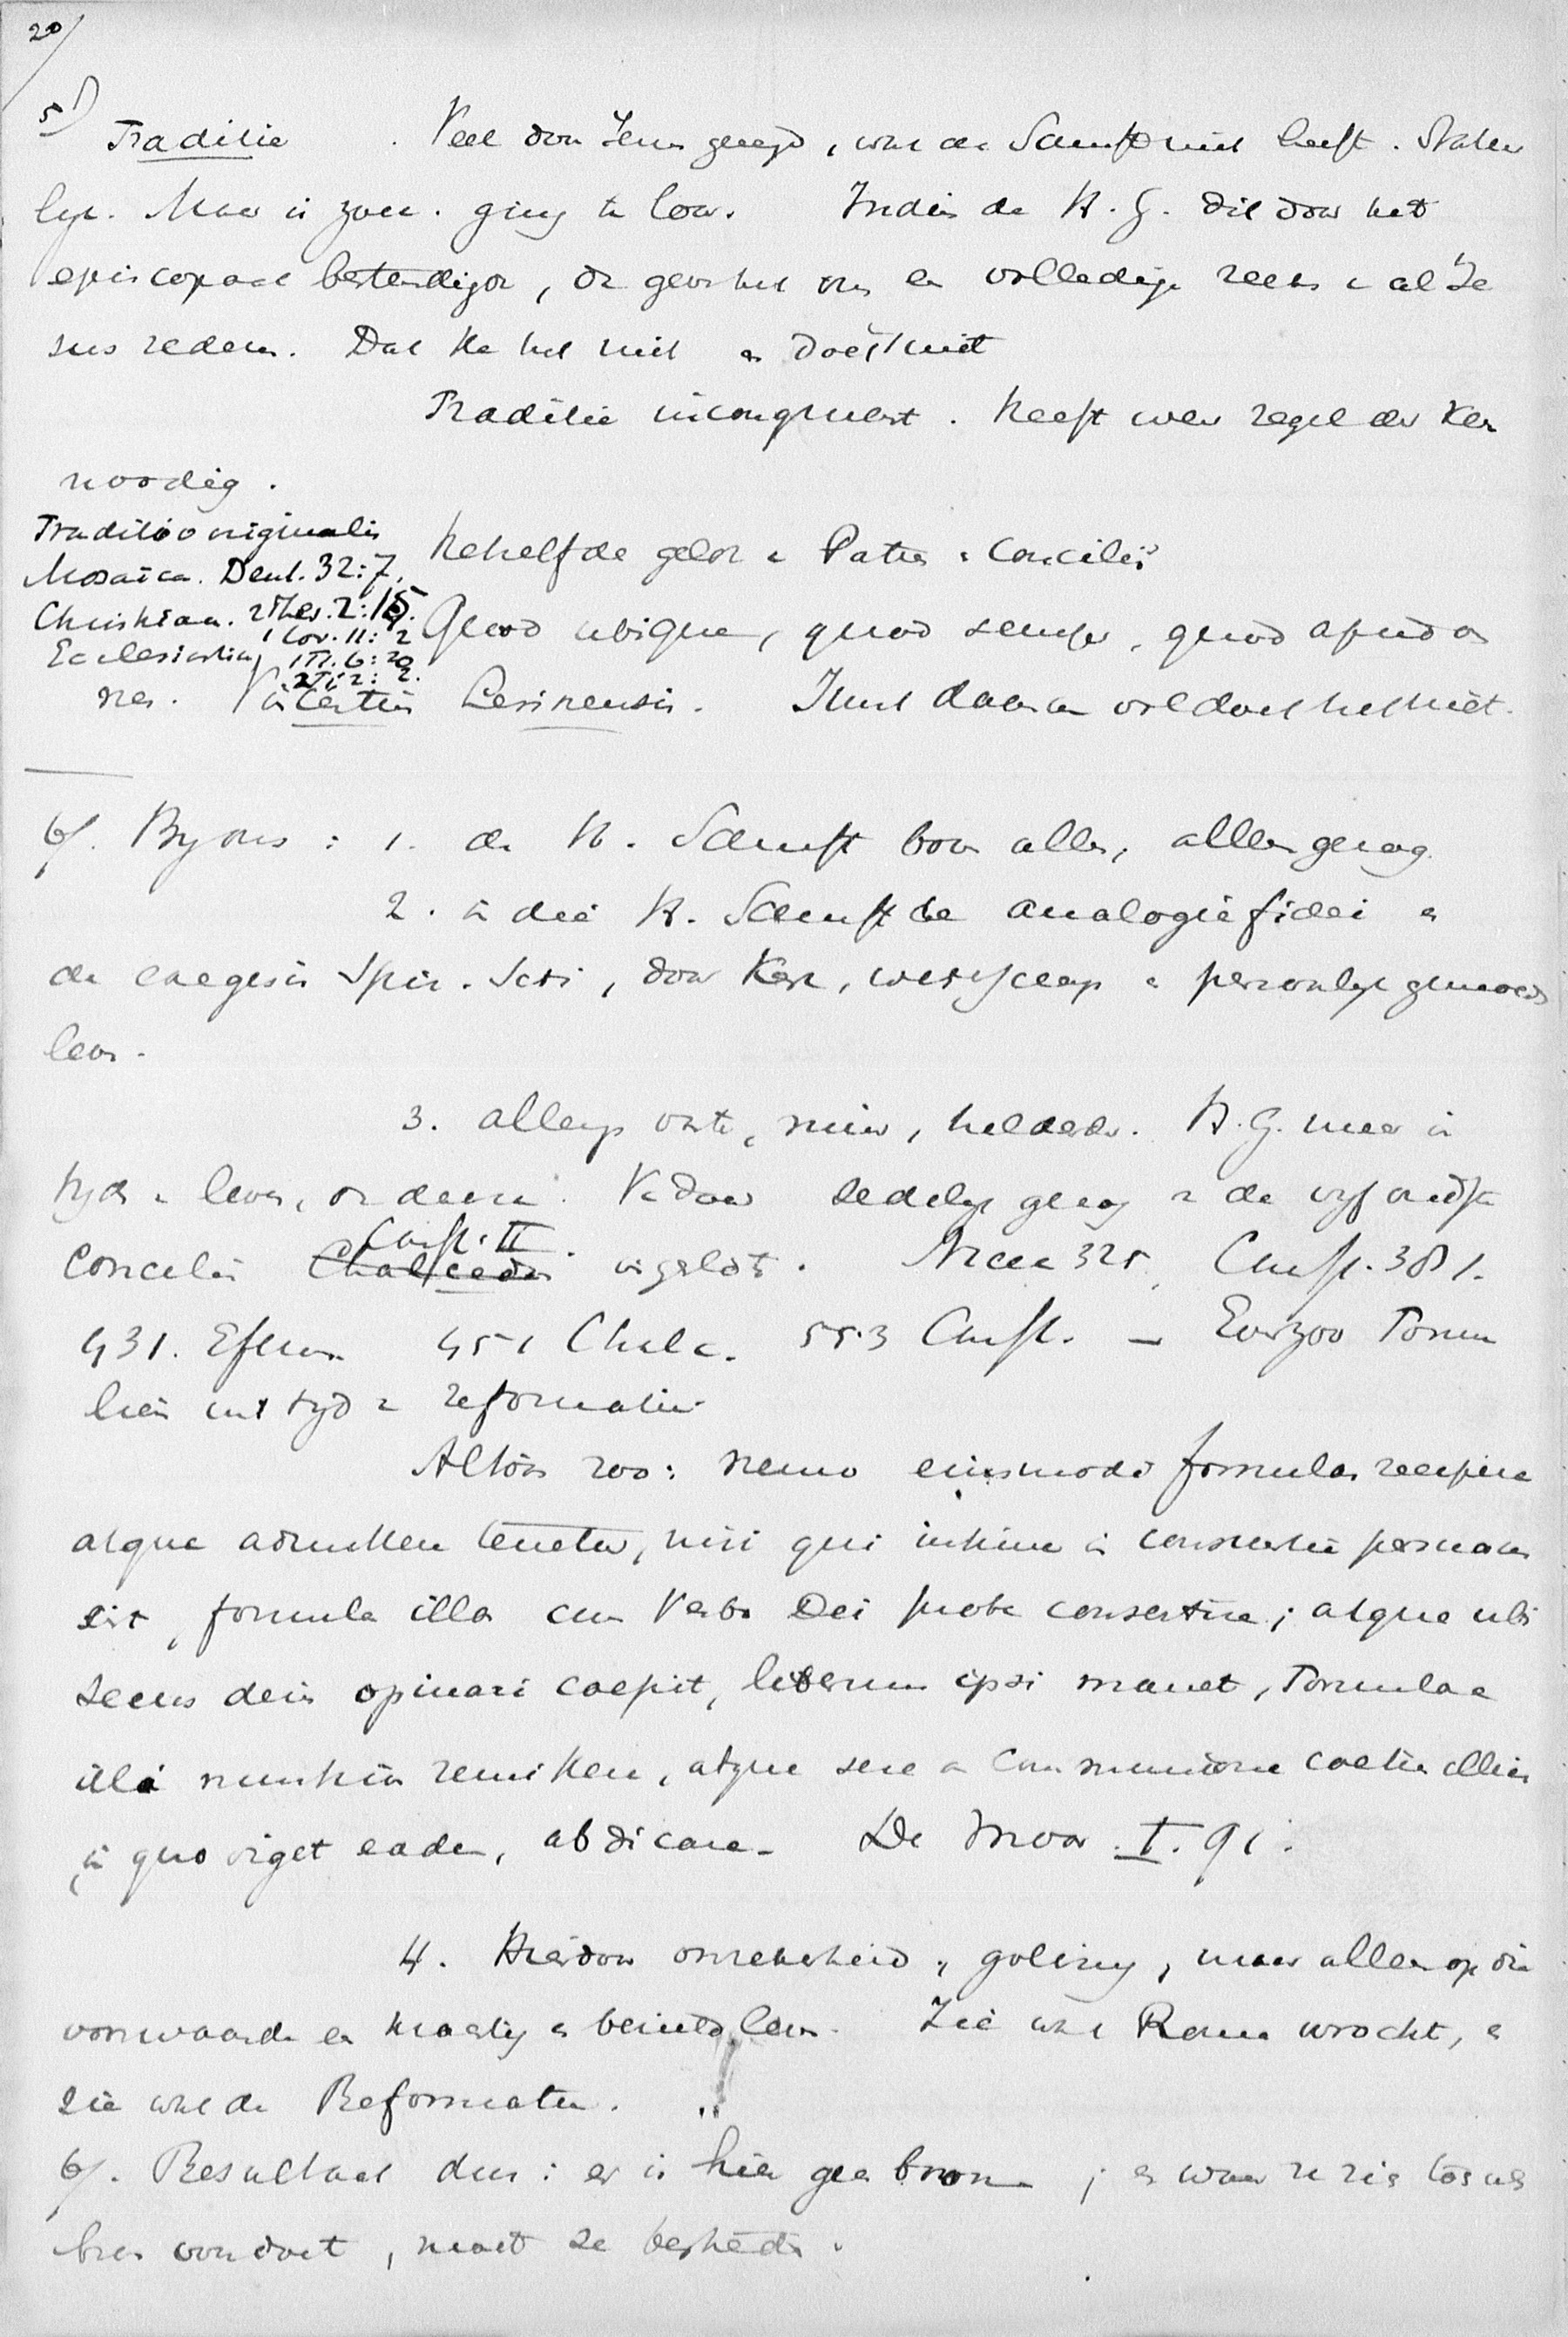 20/
5) Traditie. Veel door Jezus gezegd, wat de Schrift niet heeft. Natuur
lijk. Maar is zoek. ging te loor. Indien de H. G. dit door het
episcopaat bestendigde, dan
volledige reeks v al Je
zus redenen. Dat kan het niet en doet 't niet
Traditie incongruent. heeft weer regel der Kerk
noodig.
Traditio originalis
Mosaica. Deut. 32:7.
Christiana. 2 Thes. 2:15.
1 Cor. 11:2
Ecclesiastica, 1 Ti. 6:20
2 Ti 2:2.
hetzelfde geldt v Patres & Conciliën
Quod ubique, quod semper, quod apud om
nes. Vincentius Lerinensis. Juist daaraan voldoet het niet.
6/. By ons: 1. de H. Schrift boven alles, alleen genoeg.
2. in die H. Schrift de analogie fidei en
de exegesis Spir. Scti, door Kerk, wetschap & persoonlyk gemoeds
leven.
3. allengs vaster, ruimer, helderder. H. G. meer in
tyd & leven, en daarin. Vandaar zedelyk gezag v de vyf oudste
conciliën Chalcedon Const. II. Nicea 325, Const. 381.
431. Efeze 451 Chalc. 553 Const. — Evenzoo Formu
lieren uit tyd v reformatie.
Altoos zoo: nemo eiusmodi formulas recipere
atque admittere tenetur, nisi qui intime in conscientia persuasus
sit, formula illa cum Verbo Dei probe consentire; atque ubi
secus dein opinari coepit, liberum ipsi manet, Formulae
illi nuntium remittere, atque sese a communione coetus illius
in quo viget eadem, abdicare. De Moor. I. 91.
4. Hierdoor onzekerheid, golving, maar alleen op die
voorwaarde een krachtig & bezield leven. Zie wat Rome wrocht, &
zie wat de Reformatie.
6/. Resultaat dus: er is hier geen bron; en waar ze zich
voordoet, moet ze bestreden.